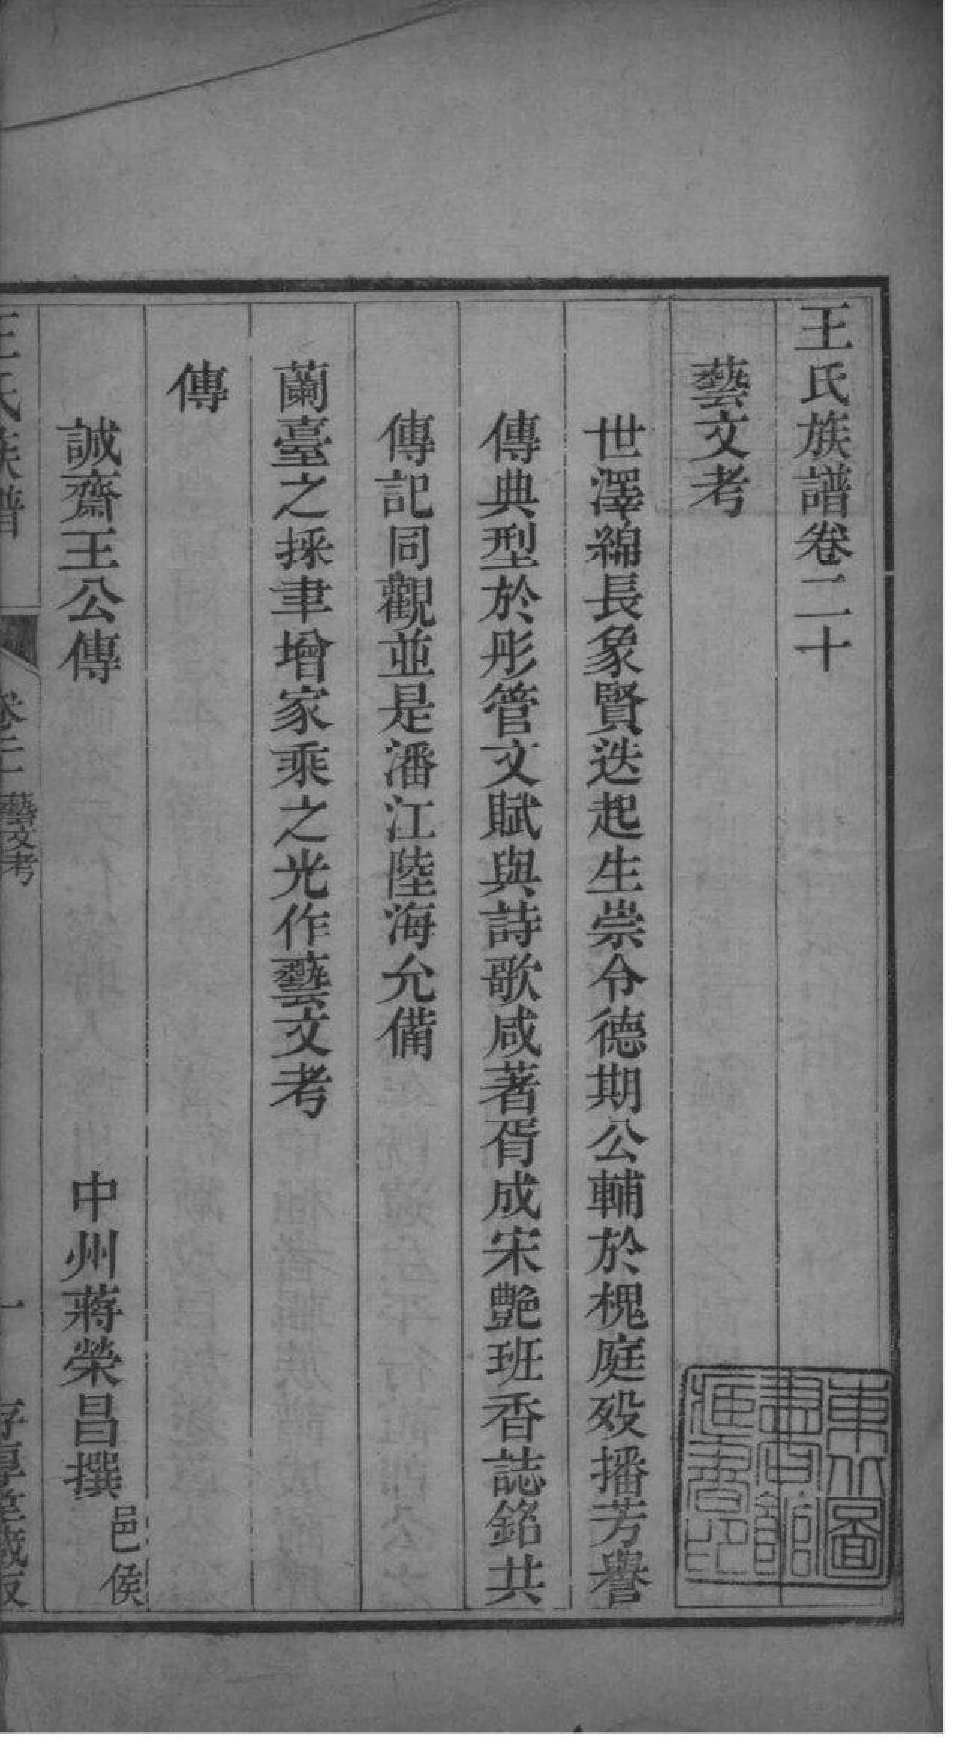 王氏族譜卷二十
藝文考
世澤綿長象賢迭起生崇令德期公輔於槐庭歿播芳譽
傳典型於彤管文賦與詩歌咸著胥成宋艷班香誌銘共
傳記同觀並是潘江陸海允備
蘭臺之採聿增家乘之光作藝文考
傳
誠齋王公傳 中州蔣榮昌撰 邑侯
王氏族譜 卷二十 藝文考 一 存厚堂藏板
東北圖書館所藏善本